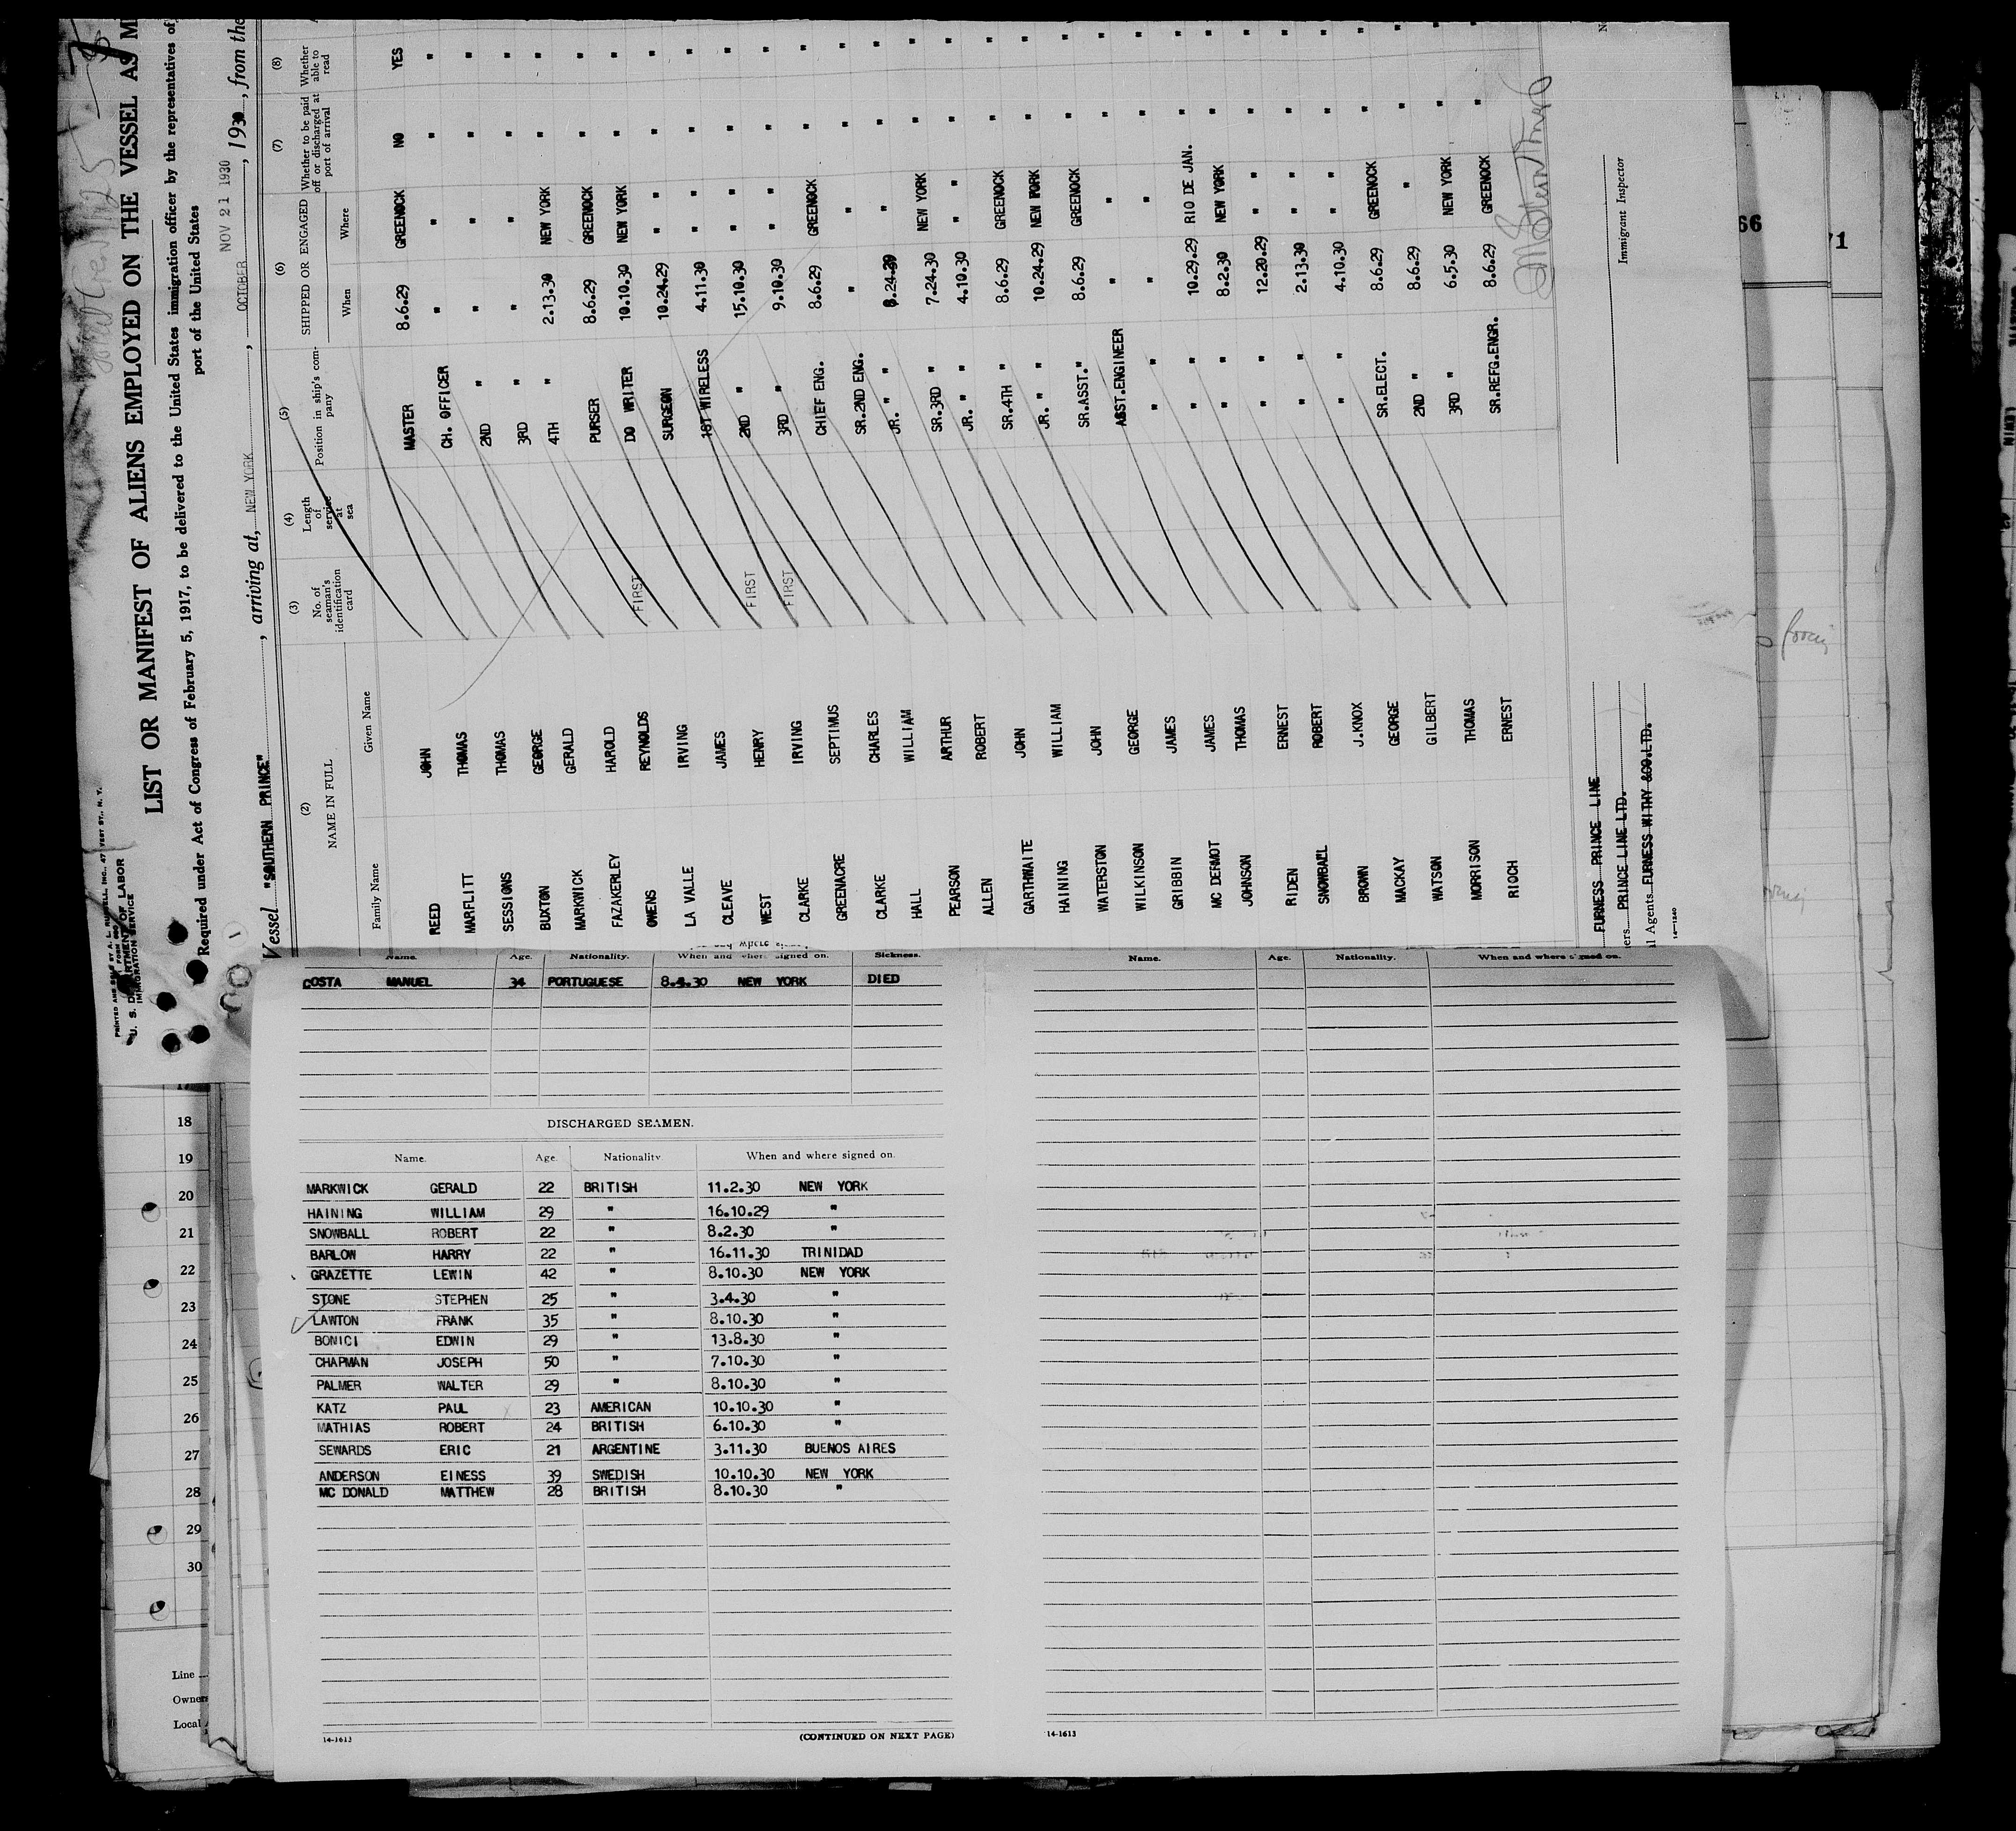 PRINTED AND SOLD BY A. L. RUSSELL, INC., 47 WEST ST., N. Y.
U. S. DEPARTMENT OF LABOR
IMMIGRATION SERVICE
LIST OR MANIFEST OF ALIENS EMPLOYED ON THE VESSEL AS M
Required under Act of Congress of February 5, 1917, to be delivered to the United States immigration officer by the representatives of
port of the United States
NOV 21 1930
Vessel "SOUTHERN PRINCE", arriving at, NEW YORK, OCTOBER, 1930, from the
(2) (3) (4) (5) (6) (7) (8)
NAME IN FULL No. of seaman's identification card Length of service at sea Position in ship's company SHIPPED OR ENGAGED Whether to be paid off or discharged at port of arrival Whether able to read
Family Name Given Name When Where
REED JOHN MASTER 8.6.29 GREENOCK NO YES
MARFLITT THOMAS CH. OFFICER " " " "
SESSIONS THOMAS 2ND " " " " "
BUXTON GEORGE 3RD " " " " "
MARKWICK GERALD 4TH " 2.13.30 NEW YORK " "
FAZAKERLEY HAROLD PURSER 8.6.29 GREENOCK " "
OWENS REYNOLDS FIRST DO WRITER 10.10.30 NEW YORK " "
LA VALLE IRVING SURGEON 10.24.29 " " "
CLEAVE JAMES 1ST WIRELESS 4.11.30 " " "
WEST HENRY FIRST 2ND " 15.10.30 " " "
CLARKE IRVING FIRST 3RD " 9.10.30 " " "
GREENACRE SEPTIMUS CHIEF ENG. 8.6.29 GREENOCK " "
CLARKE CHARLES SR.2ND ENG. " " " "
HALL WILLIAM JR. " " 8.24.29 " " "
PEARSON ARTHUR SR.3RD " 7.24.30 NEW YORK " "
ALLEN ROBERT JR. " " 4.10.30 " " "
GARTHWAITE JOHN SR.4TH " 8.6.29 GREENOCK " "
HAINING WILLIAM JR. " " 10.24.29 NEW YORK " "
WATERSTON JOHN SR.ASST." 8.6.29 GREENOCK " "
WILKINSON GEORGE ASST.ENGINEER " " " "
GRIBBIN JAMES " " " " " "
MC DERMOT JAMES " " 10.29.29 RIO DE JAN. " "
JOHNSON THOMAS " " 8.2.30 NEW YORK " "
RIDEN ERNEST " " 12.20.29 " " "
SNOWBALL ROBERT " " 2.13.30 " " "
BROWN J.KNOX " " 4.10.30 " " "
MACKAY GEORGE SR.ELECT. 8.6.29 GREENOCK " "
WATSON GILBERT 2ND " 8.6.29 " " "
MORRISON THOMAS 3RD " 6.5.30 NEW YORK " "
RIOCH ERNEST SR.REFG.ENGR. 8.6.29 GREENOCK " "
Immigrant Inspector
FURNESS PRINCE LINE
ers PRINCE LINE LTD.
l Agents FURNESS WITHY &CO.LTD.
14-1240
Name. Age. Nationality. When and where signed on. Sickness.
COSTA MANUEL 34 PORTUGUESE 8.4.30 NEW YORK DIED
DISCHARGED SEAMEN.
Name. Age. Nationality When and where signed on.
MARKWICK GERALD 22 BRITISH 11.2.30 NEW YORK
HAINING WILLIAM 29 " 16.10.29 "
SNOWBALL ROBERT 22 " 8.2.30 "
BARLOW HARRY 22 " 16.11.30 TRINIDAD
GRAZETTE LEWIN 42 " 8.10.30 NEW YORK
STONE STEPHEN 25 " 3.4.30 "
LAWTON FRANK 35 " 8.10.30 "
BONICI EDWIN 29 " 13.8.30 "
CHAPMAN JOSEPH 50 " 7.10.30 "
PALMER WALTER 29 " 8.10.30 "
KATZ PAUL 23 AMERICAN 10.10.30 "
MATHIAS ROBERT 24 BRITISH 6.10.30 "
SEWARDS ERIC 21 ARGENTINE 3.11.30 BUENOS AIRES
ANDERSON EINESS 39 SWEDISH 10.10.30 NEW YORK
MC DONALD MATTHEW 28 BRITISH 8.10.30 "
14-1613 (CONTINUED ON NEXT PAGE)
Name. Age. Nationality. When and where signed on.
14-1613
17
18
19
20
21
22
23
24
25
26
27
28
29
30
Line
Owners
Local
66
71